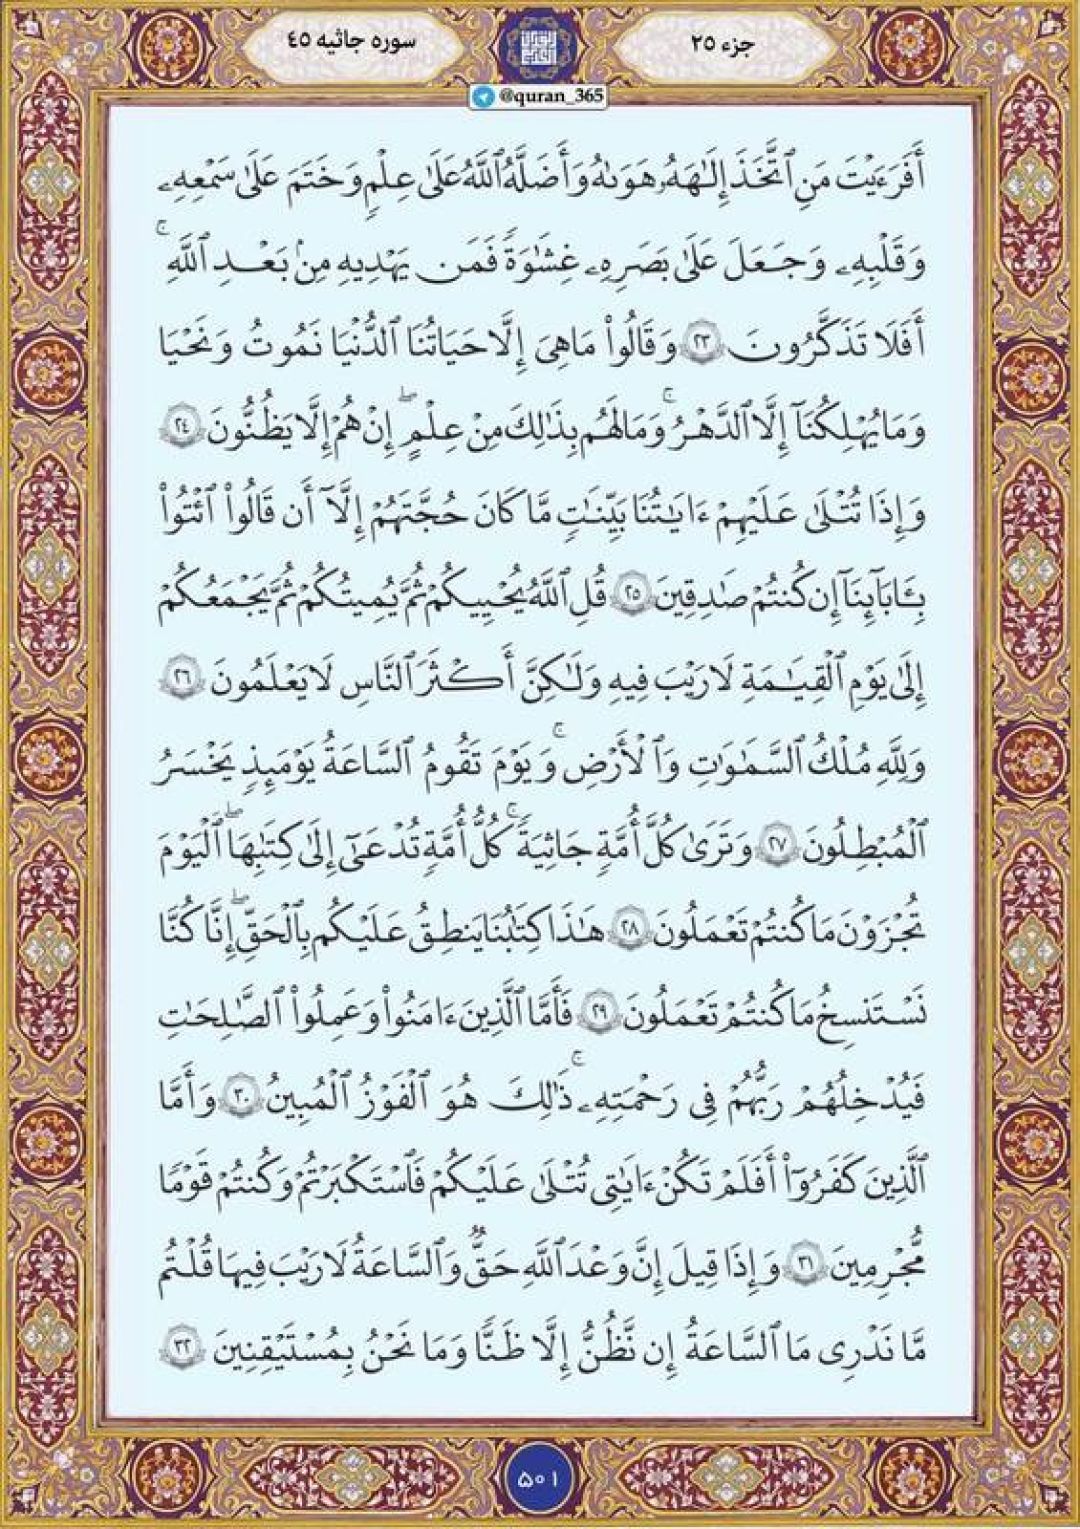 جزء ۲۵
سوره جاثیه ۴۵
@quran_365
أَفَرَءَيْتَ مَنِ ٱتَّخَذَ إِلَٰهَهُۥ هَوَىٰهُ وَأَضَلَّهُ ٱللَّهُ عَلَىٰ عِلْمٍ وَخَتَمَ عَلَىٰ سَمْعِهِۦ
وَقَلْبِهِۦ وَجَعَلَ عَلَىٰ بَصَرِهِۦ غِشَٰوَةً فَمَن يَهْدِيهِ مِنۢ بَعْدِ ٱللَّهِ ۚ
أَفَلَا تَذَكَّرُونَ ٢٣ وَقَالُوا۟ مَا هِىَ إِلَّا حَيَاتُنَا ٱلدُّنْيَا نَمُوتُ وَنَحْيَا
وَمَا يُهْلِكُنَآ إِلَّا ٱلدَّهْرُ ۚ وَمَا لَهُم بِذَٰلِكَ مِنْ عِلْمٍ ۖ إِنْ هُمْ إِلَّا يَظُنُّونَ ٢٤
وَإِذَا تُتْلَىٰ عَلَيْهِمْ ءَايَٰتُنَا بَيِّنَٰتٍ مَّا كَانَ حُجَّتَهُمْ إِلَّآ أَن قَالُوا۟ ٱئْتُوا۟
بِـَٔابَآئِنَآ إِن كُنتُمْ صَٰدِقِينَ ٢٥ قُلِ ٱللَّهُ يُحْيِيكُمْ ثُمَّ يُمِيتُكُمْ ثُمَّ يَجْمَعُكُمْ
إِلَىٰ يَوْمِ ٱلْقِيَٰمَةِ لَا رَيْبَ فِيهِ وَلَٰكِنَّ أَكْثَرَ ٱلنَّاسِ لَا يَعْلَمُونَ ٢٦
وَلِلَّهِ مُلْكُ ٱلسَّمَٰوَٰتِ وَٱلْأَرْضِ ۚ وَيَوْمَ تَقُومُ ٱلسَّاعَةُ يَوْمَئِذٍ يَخْسَرُ
ٱلْمُبْطِلُونَ ٢٧ وَتَرَىٰ كُلَّ أُمَّةٍ جَاثِيَةً ۚ كُلُّ أُمَّةٍ تُدْعَىٰٓ إِلَىٰ كِتَٰبِهَا ۖ ٱلْيَوْمَ
تُجْزَوْنَ مَا كُنتُمْ تَعْمَلُونَ ٢٨ هَٰذَا كِتَٰبُنَا يَنطِقُ عَلَيْكُم بِٱلْحَقِّ ۖ إِنَّا كُنَّا
نَسْتَنسِخُ مَا كُنتُمْ تَعْمَلُونَ ٢٩ فَأَمَّا ٱلَّذِينَ ءَامَنُوا۟ وَعَمِلُوا۟ ٱلصَّٰلِحَٰتِ
فَيُدْخِلُهُمْ رَبُّهُمْ فِى رَحْمَتِهِۦ ۚ ذَٰلِكَ هُوَ ٱلْفَوْزُ ٱلْمُبِينُ ٣٠ وَأَمَّا
ٱلَّذِينَ كَفَرُوٓا۟ أَفَلَمْ تَكُنْ ءَايَٰتِى تُتْلَىٰ عَلَيْكُمْ فَٱسْتَكْبَرْتُمْ وَكُنتُمْ قَوْمًا
مُّجْرِمِينَ ٣١ وَإِذَا قِيلَ إِنَّ وَعْدَ ٱللَّهِ حَقٌّ وَٱلسَّاعَةُ لَا رَيْبَ فِيهَا قُلْتُم
مَّا نَدْرِى مَا ٱلسَّاعَةُ إِن نَّظُنُّ إِلَّا ظَنًّا وَمَا نَحْنُ بِمُسْتَيْقِنِينَ ٣٢
۵۰۱